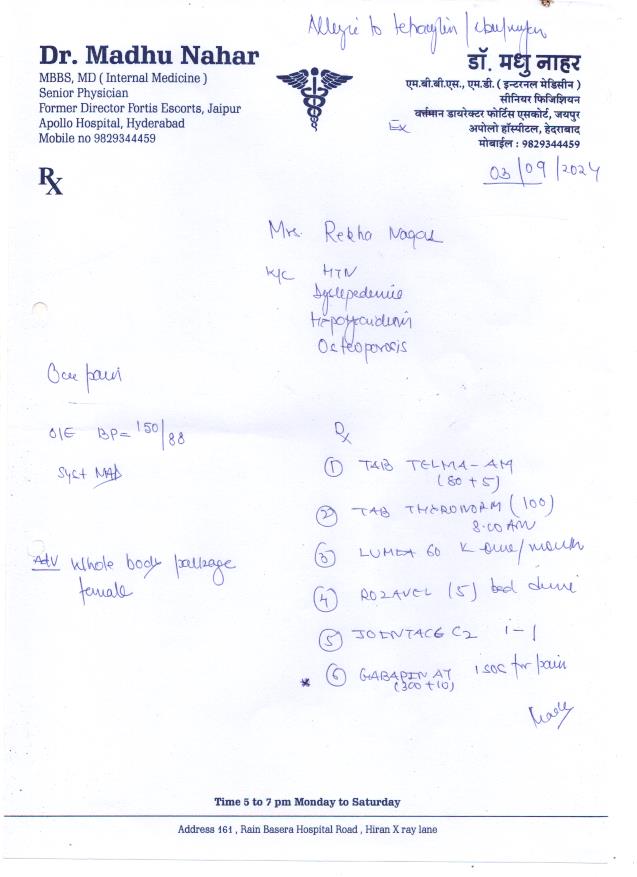 Allergic to / 
Dr. Madhu Nahar
MBBS, MD ( Internal Medicine )
Senior Physician
Former Director Fortis Escorts, Jaipur
Apollo Hospital, Hyderabad
Mobile no 9829344459
डॉ. मधु नाहर
एम.बी.बी.एस., एम.डी. ( इन्टरनल मेडिसीन )
सीनियर फिजिशियन
वर्त्तमान डायरेक्टर फोर्टिस एसकोर्ट, जयपुर
Ex अपोलो हॉस्पीटल, हेदराबाद
मोबाईल : 9829344459
Rx
03/09/2024
Mrs. Rekha Nagar
K/C HTN
Osteoporosis
pain
O/E BP= 150/88
Syst NAD
Adv Whole body package
female
Rx
① TAB TELMA-AM
(80 + 5)
② TAB THYRONORM (100)
8.00 AM
③ 60 K one/month
④ ROZAVEL (5) bed time
⑤ JOINTACE C2 1-1
* ⑥ GABAPIN AT 1 SOS for pain
(300+10)
Time 5 to 7 pm Monday to Saturday
Address 161 , Rain Basera Hospital Road , Hiran X ray lane